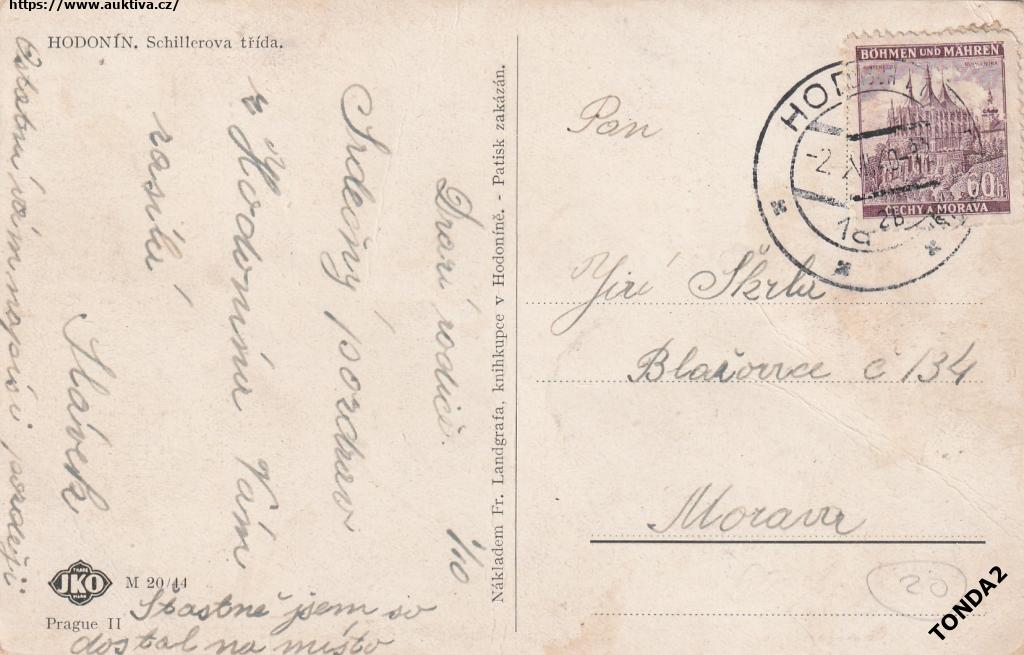 https://www.auktiva.cz/
HODONÍN. Schillerova třída.
1/10
Drazí rodiče.
Srdečný pozdrav
z Hodonína Vám
zasílá
Slávek
Ostatní vám napíši později
Šťastně jsem se
dostal na místo
JKO
M 20/44
Prague II
Nákladem Fr. Landgrafa, knihkupce v Hodoníně. - Patisk zakázán.
BÖHMEN UND MÄHREN
60h
ČECHY A MORAVA
Pan
Jiří Škrla
Blažovice č 134
Morava
20
TONDA2